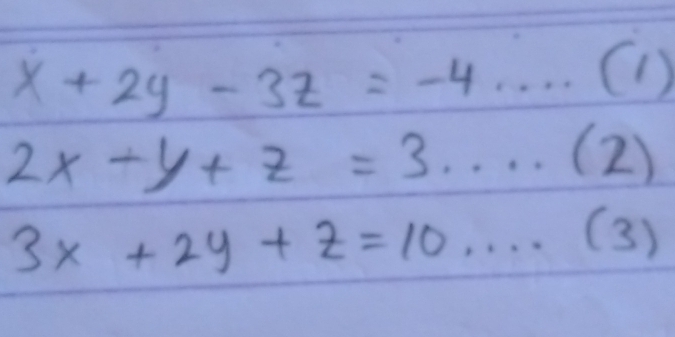 x + 2y - 3z = -4 .... (1)
2x - y + z = 3 .... (2)
3x + 2y + z = 10 .... (3)